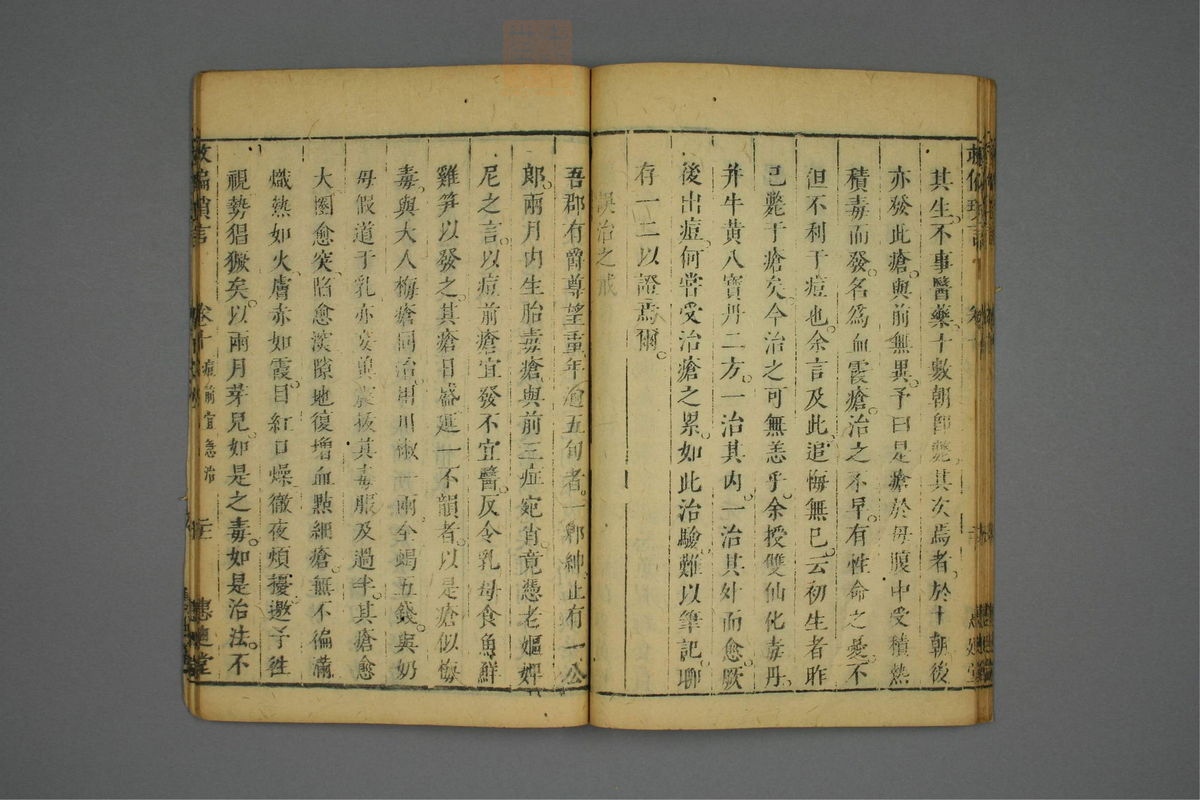 其生。不事醫藥。十數朝卽斃。其次焉者。於十朝後
亦發此瘡。與前無異。予曰是瘡於母腹中受積熱
積毒而發。名爲血霞瘡。治之不早。有性命之憂。不
但不利于痘也。余言及此。追悔無已。云初生者昨
已斃于瘡矣。今治之可無恙乎。余授雙仙化毒丹。
并牛黃八寶丹二方。一治其内。一治其外而愈。厥
後出痘。何嘗受治瘡之累。如此治驗。難以筆記。聊
存一二以證焉爾。
誤治之戒
吾郡有爵尊望重。年逾五旬者。一鄉紳。止有一公
郎。兩月内生胎毒瘡。與前三症宛肖。竟憑老嫗嬋
尼之言。以痘前瘡宜發不宜醫。反令乳母食魚鮮
雞笋以發之。其瘡日盛。延一不韻者。以是瘡似梅
毒。與大人梅瘡同治。用川椒一兩全蝎五錢。與奶
母假道于乳
毒。服及過半。其瘡愈
大。圈愈突。陷愈深。隙地復增血點細瘡。無不徧滿。
熾熱如火。膚赤如霞。目紅口燥。徹夜煩擾。邀予往
視。勢猖獗矣。以兩月芽兒。如是之毒。如是治法。不
救偏瑣言
卷十
痘前宜急治
惠迪堂